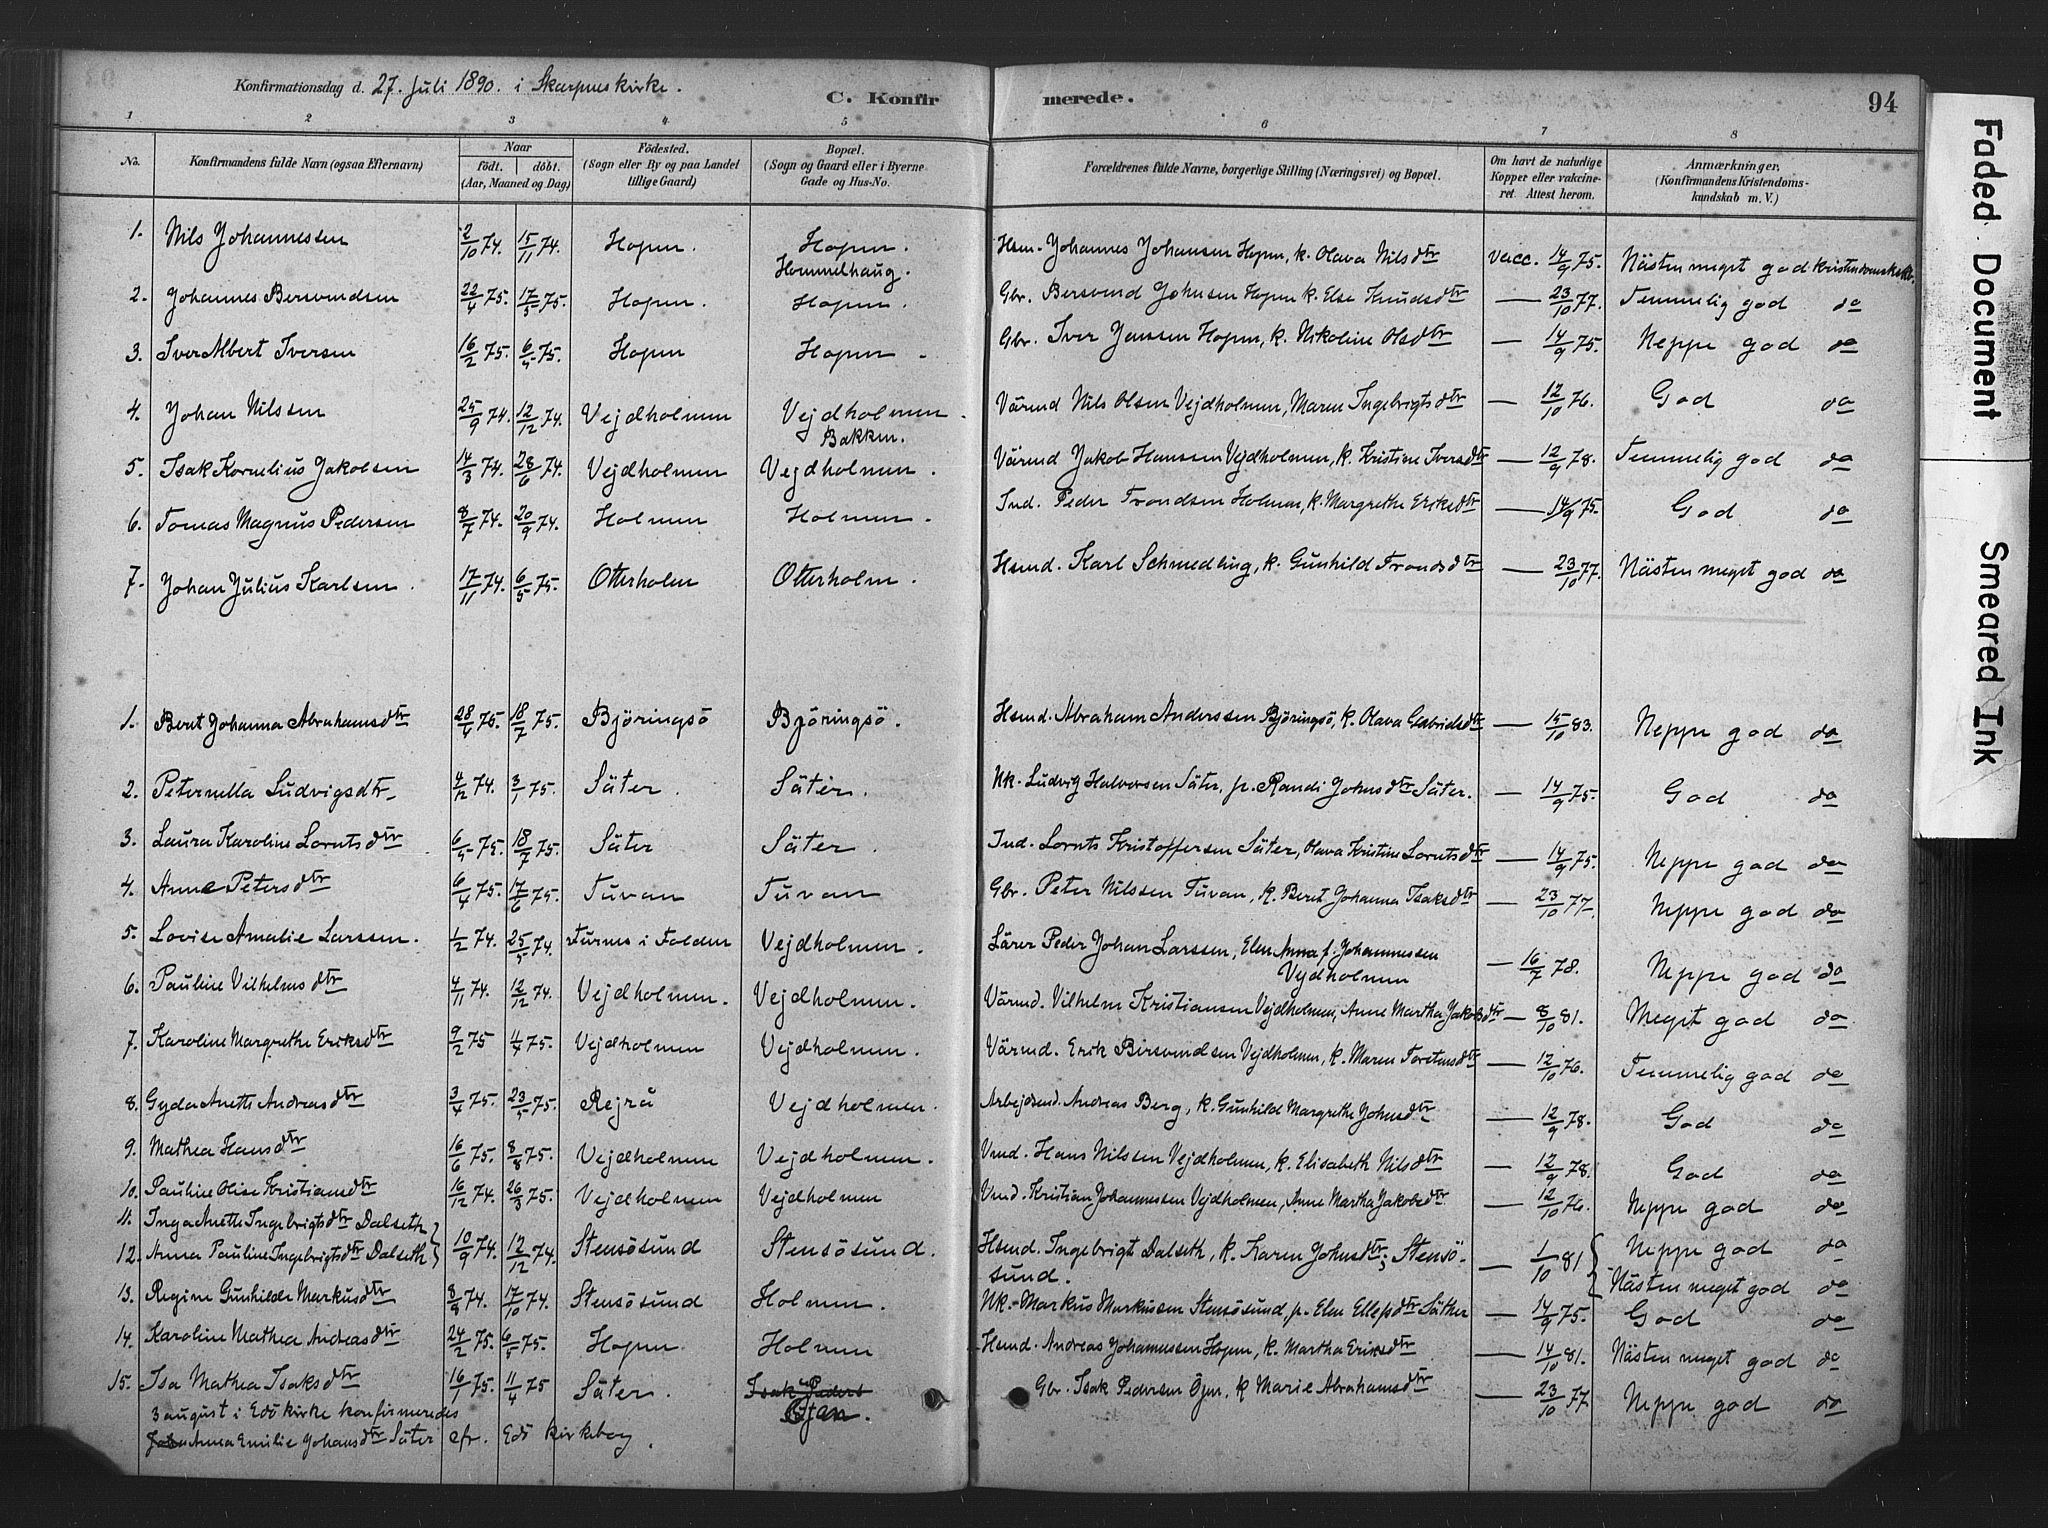 Konfirmationsdag d. 27. Juli 1890. i Skarpnes kirke.
C. Konfirmerede.
94
1 2 3 4 5 6 7 8
No. Konfirmandens fulde Navn (ogsaa Efternavn) Naar født. døbt. (Aar, Maaned og Dag) Fødested. (Sogn eller By og paa Landet tillige Gaard) Bopæl. (Sogn og Gaard eller i Byerne Gade og Hus-No. Forældrenes fulde Navne, borgerlige Stilling (Næringsvei) og Bopæl. Om havt de naturlige Kopper eller vaccineret. Attest herom. Anmærkninger. (Konfirmandens Kristendomskundskab m. V.)
1. Nils Johannessen 2/10 74. 15/11 74. Hopen. Hopen. Hommelhaug. Hsm. Johannes Johansen Hopen, k. Olava Nilsdtr Vacc. 14/9 75. Nästen meget god kristendomskskb.
2. Johannes Bersvendsen 22/4 75. 17/5 75. Hopen. Hopen. Gbr. Bersvend Johnsen Hopen k. Else Knudsdtr — 23/10 77. Temmelig god do
3. Iver Albert Iversen 16/2 75. 6/5 75. Hopen Hopen Gbr. Iver Jenssen Hopen, k. Nikoline Olsdtr — 14/9 75. Neppe god do
4. Johan Nilssen 25/9 74. 12/12 74. Vejdholmen Vejdholmen. Bakken. Värmd Nils Olsen Vejdholmen, Maren Ingebrigtsdtr — 12/10 76. God do
5. Isak Kornelius Jakobsen 14/3 74. 28/6 74. Vejdholmen Vejdholmen. Värmd Jakob Hanssen Vejdholmen, k. Kristine Iversdtr — 12/9 78. Temmelig god do
6. Tomas Magnus Pedersen 8/7 74. 20/9 74. Holmen Holmen. Ind. Peder Trondsen Holmen, k. Margrethe Eriksdtr — 14/9 75. God do
7. Johan Julius Karlsen. 17/11 74. 6/5 75. Otterholm Otterholm. Hsmd. Karl Schmedling, k. Gunhild Trondsdtr — 23/10 77. Nästen meget god do
1. Berit Johanna Abrahamsdtr 28/4 75. 18/7 75. Björingsö Björingsö. Hsmd. Abraham Anderssen Björingsö, k. Olava Gabrielsdtr — 15/10 83. Neppe god do
2. Peternella Ludvigsdtr 4/12 74. 3/1 75. Säter. Säter. Nk. Ludvig Halvorsen Säter, p. Randi Johnsdtr Säter. — 14/9 75. God do
3. Laura Karoline Lorntsdtr 6/5 75. 18/7 75. Säter Säter. Ind. Lornts Kristoffersen Säter, Olava Kristine Lorntsdtr — 14/9 75. Neppe god do
4. Anne Petersdtr 6/4 75. 17/6 75. Tuvan Tuvan Gbr. Peter Nilssen Tuvan, k. Berit Johanna Isaksdtr — 23/10 77. Neppe god do
5. Lovise Amalie Larssen. 1/2 74. 25/5 74. Furnes i Folden Vejdholmen. Lärer Peder Johan Larssen, Elen Anna f. Johannessen Vejdholmen — 16/7 78. Neppe god do
6. Pauline Vilhelmsdtr 4/11 74. 12/12 74. Vejdholmen. Vejdholmen. Värmd. Vilhelm Kristiansen Vejdholmen, Anne Martha Jakobsdtr — 8/10 81. Meget god do
7. Karoline Margrethe Eriksdtr 9/2 75 11/4 75. Vejdholmen Vejdholmen. Värmd. Erik Bersvendsen Vejdholmen, k. Maren Torstensdtr — 12/10 76. Temmelig god do
8. Gyda Anette Andreasdtr 3/4 75. 23/5 75. Rejrå Vejdholmen. Arbejdsmd. Andreas Berg, k. Gunhild Margrethe Johnsdtr — 12/9 78. God do
9. Mathea Hansdtr 16/6 75. 8/8 75. Vejdholmen Vejdholmen. Vmd. Hans Nilssen Vejdholmen, k. Elisabeth Nilsdtr — 12/9 78. God do
10. Pauline Olise Kristiansdtr 16/12 74. 26/3 75. Vejdholmen Vejdholmen Vmd. Kristian Johannessen Vejdholmen, Anne Martha Jakobsdtr — 12/10 76. Neppe god do
11. Inga Anette Ingebrigtsdtr Dalseth
12. Anna Pauline Ingebrigtsdtr Dalseth 10/9 74. 12/12 74. Stensösund Stensösund. Hsmd. Ingebrigt Dalseth, k. Karen Johnsdtr, Stensösund. — 1/10 81 Neppe god do Nästen meget god do
13. Regine Gunhilde Markusdtr 8/9 74. 17/10 74. Stensösund Holmen. Nk. Markus Markussen Stensösund, p. Elen Ellefsdtr Säther — 14/9 75. God do
14. Karoline Mathea Andreasdtr 24/2 75. 6/5 75. Hopen. Holmen Hsmd. Andreas Johannessen Hopen, k. Martha Eriksdtr — 14/10 81. Nästen meget god do
15. Isa Mathea Isaksdtr 16/1 75. 11/4 75 Säter. Isak Peders Öjen. Gbr. Isak Pedersen Öjen, k Marie Abrahamsdtr — 23/10 77 Neppe god do
3 august i Edö kirke konfirmeredes
Anna Emilie Johansdtr Säter cfr. Edö kirkebog.
Faded Document
Smeared Ink